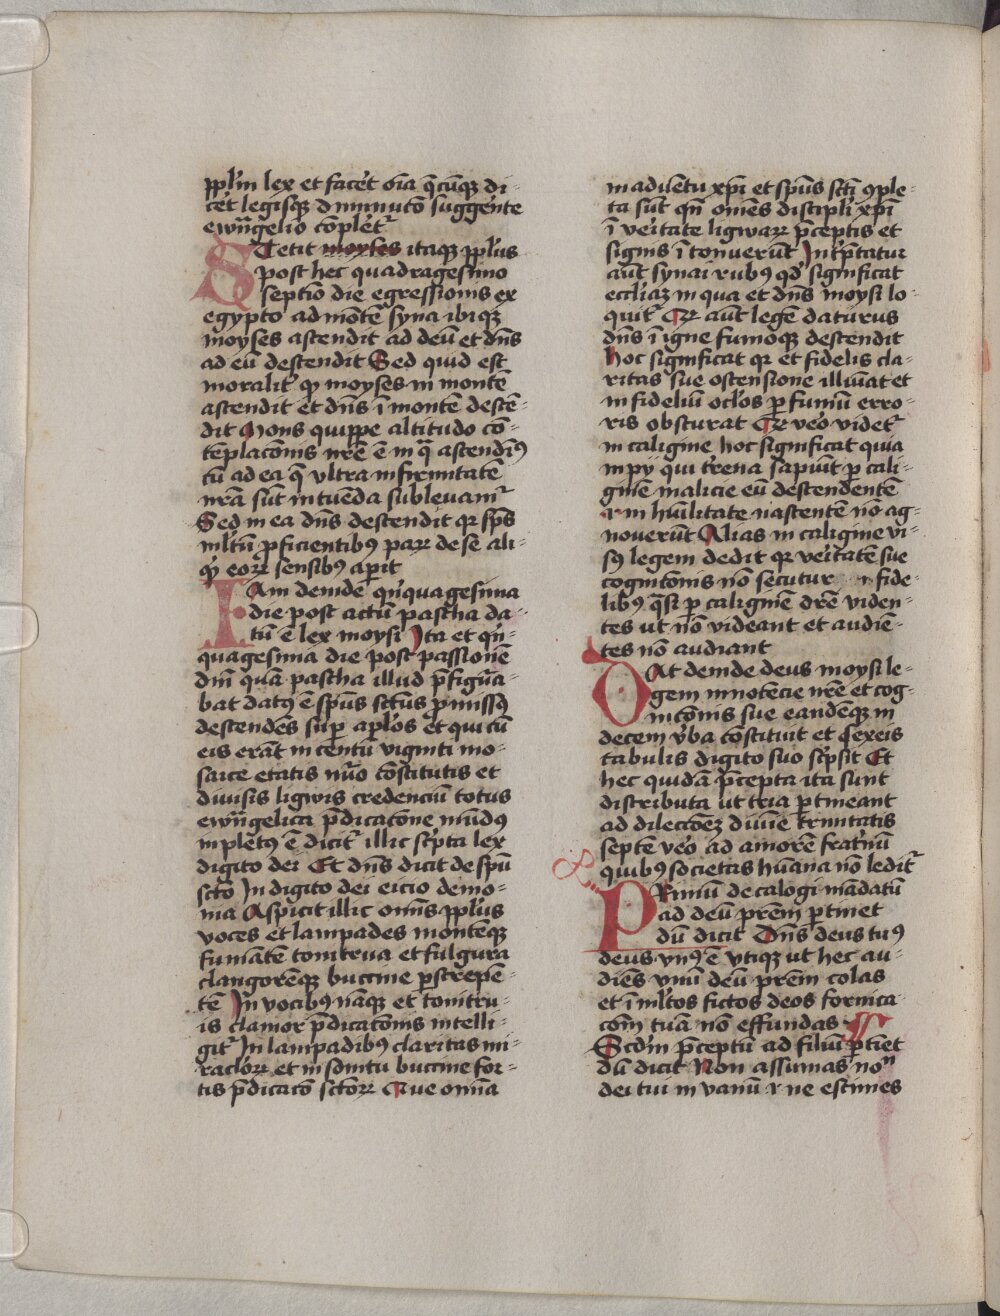 ppl̄m lex et facēt oīa q̄cūqꝫ di-
cēt legisqꝫ d mīnutō suggēnte
ewāngelio cōplēt᷑
Stetit moyses itaqꝫ ppl̄us
post hec quadragesimo
septīo die egressionis ex
egypto ad mōtē syna ibiqꝫ
moyses ascendit ad deū et dn̄s
ad eū descendit Sed quid est
moralit᷑ ꝙ moyses in montē
ascendit et dn̄s ī montē descē-
dit Mons quippe altitudo cō-
tēplac̄onis nr̄e ē in q̄ ascendīꝰ
tū ad ea q̄ vltra infirmitatē
nr̄ā sūt intuēda sublevam᷑
Sed in ea dn̄s descendit qꝛ sp̄s
ml̄tū ꝓficientibꝰ parꝝ de se ali-
qͥ eoꝝ sensibꝰ aperit
IAm deinde qͥnquagesima
die post actū pascha da-
tū ē lex moysi Ita et qͥn-
quagesima die post passionē
dn̄i quā pascha illud p̄figūa-
bat datꝰ ē sp̄us sc̄tus ꝓmissꝰ
descendēs suꝑ ap̄los et qui cū
eis erāt in centū viginti mo-
saice etatis nūo cōstitutis et
diuisis ligwis credenciū totus
ewāngelica p̄dicatōne mūdꝰ
inpletꝰ ē dicit᷑ illic sc̄pta lex
digito dei Et dn̄s dicit de sp̄u
sc̄tō In digito dei eicio demo-
nia Aspicit illic om̄s ppl̄us
voces et lampades montēqꝫ
fumātē tonitrua et fulgura
clangorēqꝫ buccine ꝑstrepē-
tē In vocibꝰ nāqꝫ et tonitru-
is clamor p̄dicatōnis intelli-
git᷑ In lampadibꝰ claritas mi-
raclōꝝ et in sonitu buccine for-
tis p̄dicatō sc̄torꝝ Que omīa
in aduētu xp̄i et sp̄us sc̄ti ꝯple-
ta sūt qn̄ om̄es discipl̄i xp̄i
ī veritate ligwaꝝ p̄ceptis et
signis ītonuerūt Int̄p̄tatur
aūt synai rubꝰ qd̓ significat
eccl̄iaꝫ in qua et dn̄s moysi lo-
quit᷑ Qꝛ aūt legē daturus
dn̄s ī igne fumoqꝫ descendit
hoc significat qꝛ et fidelis cla-
ritas sue ostensione illūat et
in fideliū ocl̄os ꝑ fumū erro-
ris obscurat Qꝛ vēo videt᷑
in caligine hoc significat quia
inpij qui t̄rena sapiūt ꝑ cali-
ginē malicie eū descendentē
⁊ in hūilitate nascentē nō ag-
nouerūt Alias in caligine vi-
sꝰ legem dedit qꝛ veritatē sue
cognitōnis nō secutur ⁊ fide-
libꝰ q̄si ꝑ caliginē dr̄e viden-
tes ut nō videant et audiē-
tes nō audiant
DAt deinde deus moysi le-
gem innotēcie nr̄e et cog-
nicōnis sue eandēqꝫ in
decem v̄ba cōstituit et sexeis
tabulis digito suo sc̄psit Et
hec quidā p̄cepta ita sunt
distributa ut tria ꝑtineant
ad dilectōeꝫ diuīe t̄rinitatis
septē vēo ad amorē frat̄nū
quibꝰ societas hūana nō ledit᷑
PRimū decalogi mādatū
ad deū p̄rēm ꝑtinet
dū dicit Dn̄s deus tuꝰ
deus vnꝰ ē vtiqꝫ ut hec au-
diēs vnū deū p̄rēm colas
et ī ml̄tos fictos deos fornica-
cōm tuā nō effundas
Scd̄m p̄ceptū ad filiū ꝑtiet
dū dicit Non assumas noᵐ
dei tui in vanū ⁊ ne estimes